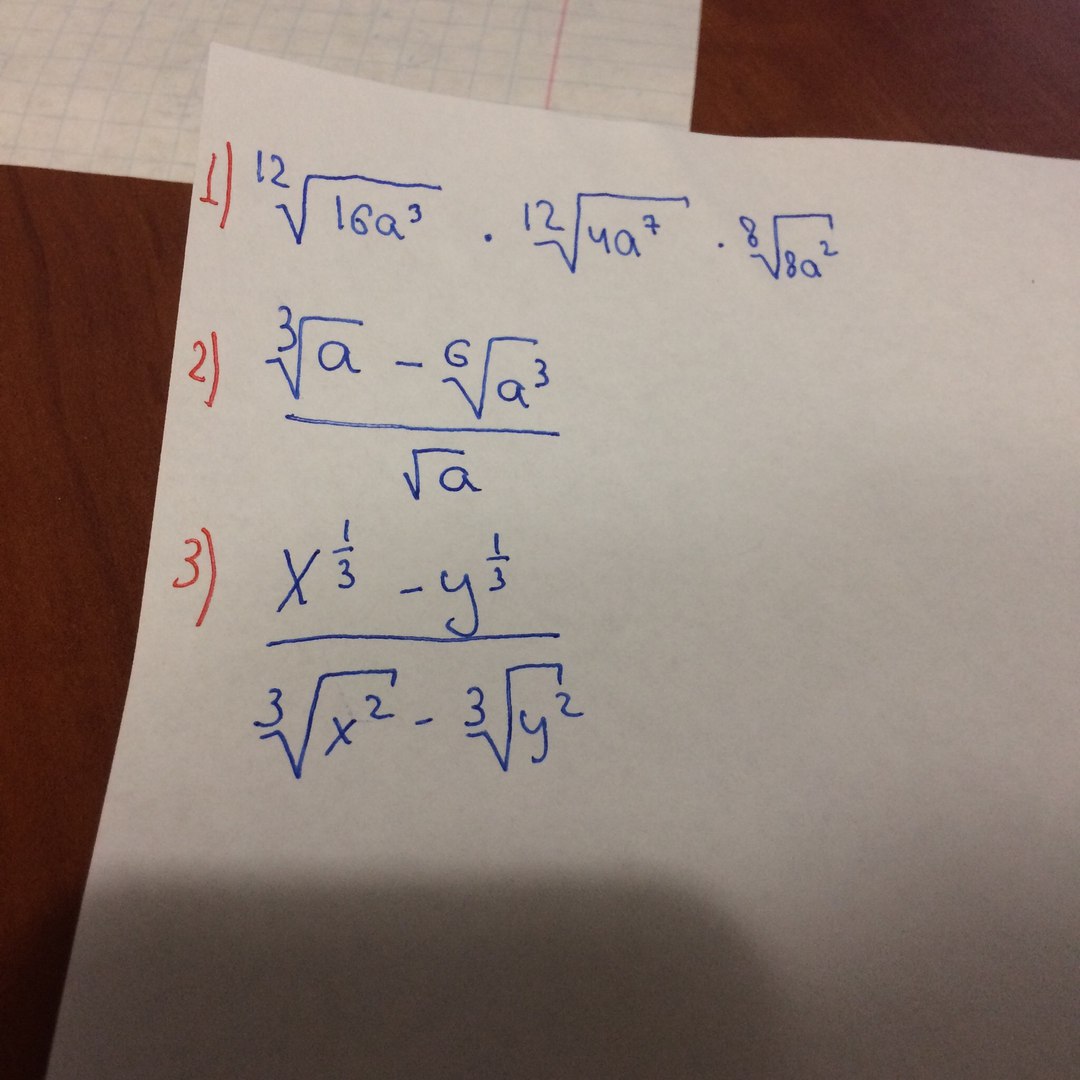 1) $\sqrt[12]{16a^3} \cdot \sqrt[12]{4a^7} \cdot \sqrt[8]{8a^2}$
2) $\frac{\sqrt[3]{a} - \sqrt[6]{a^3}}{\sqrt{a}}$
3) $\frac{x^{\frac{1}{3}} - y^{\frac{1}{3}}}{\sqrt[3]{x^2} - \sqrt[3]{y^2}}$